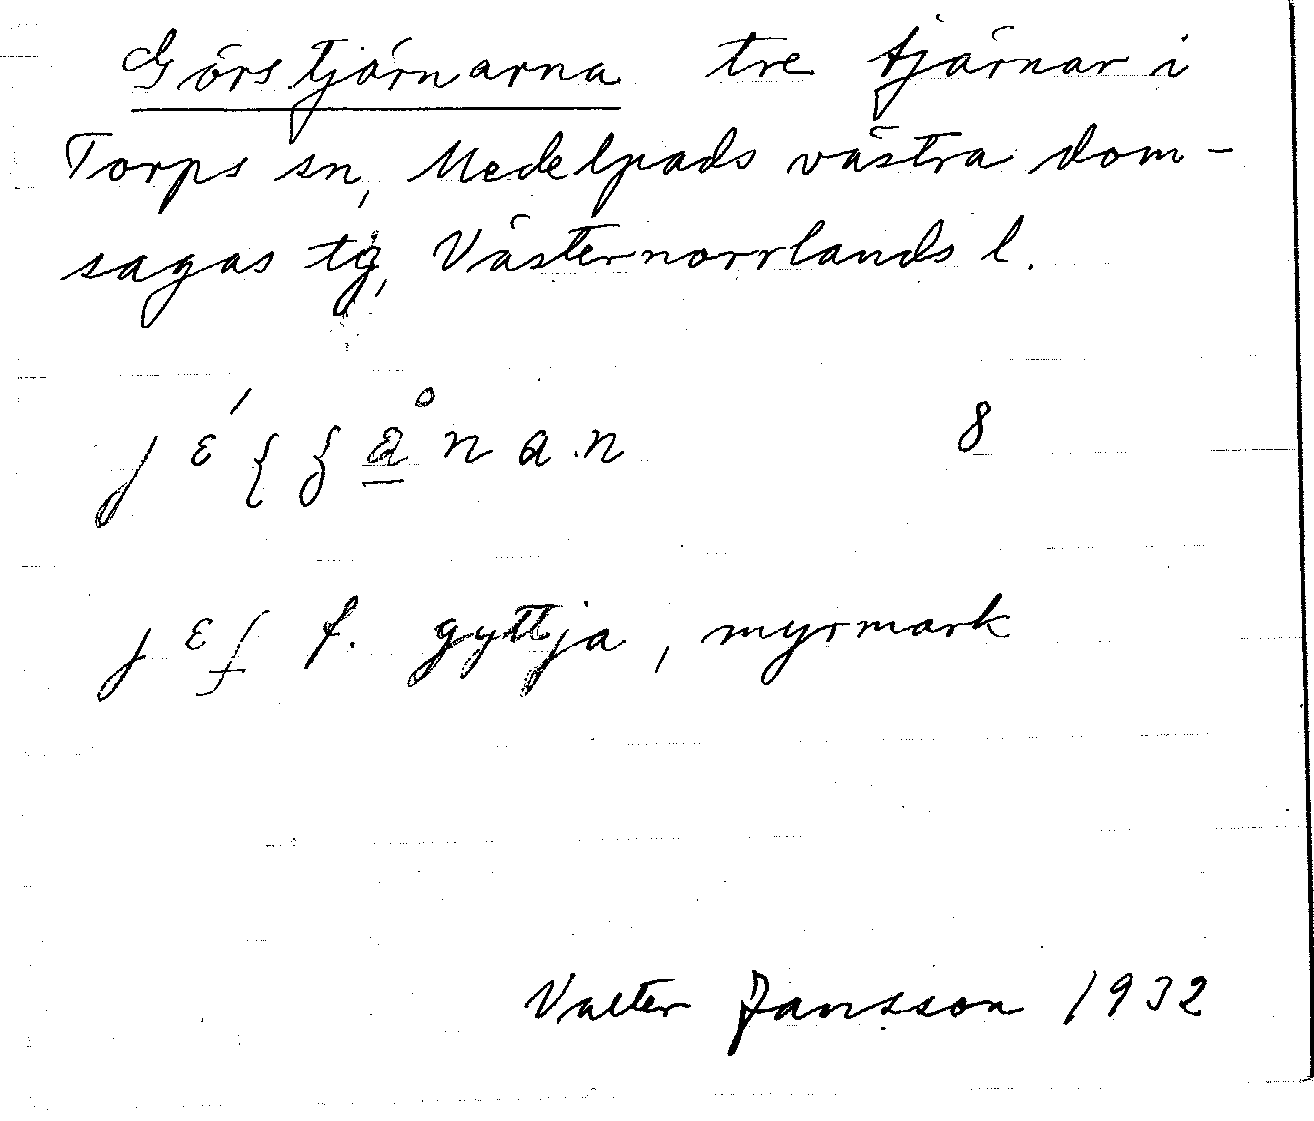 Görstjärnarna tre tjärnar i
Torps sn, Medelpads västra dom-
sagas tg, Västernorrlands l.
8
f. gyttja, myrmark
Valter Jansson 1932